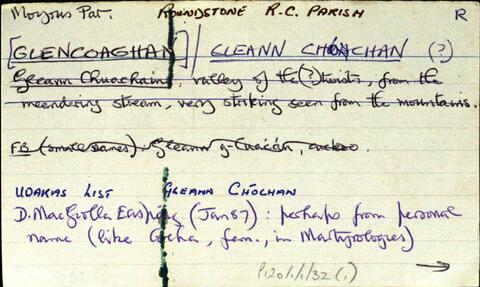 Moyrus Par. ROUNDSTONE R.C. PARISH R
[GLENCOAGHAN] / CLEANN CHÓCHAN (?)
Gleann Chuachain, valley of the (?) twists, from the
meandering stream, very striking seen from the mountains.
FB (small names). Gleann g-Cuacán, cuckoo.
UDARAS LIST GLEANN CHÓCHAN
D. MacGiolla Easpaig (Jan 87): perhaps from personal
name (like Cocha, fem., in Martyrologies)
P120/1/1/32 (1) →